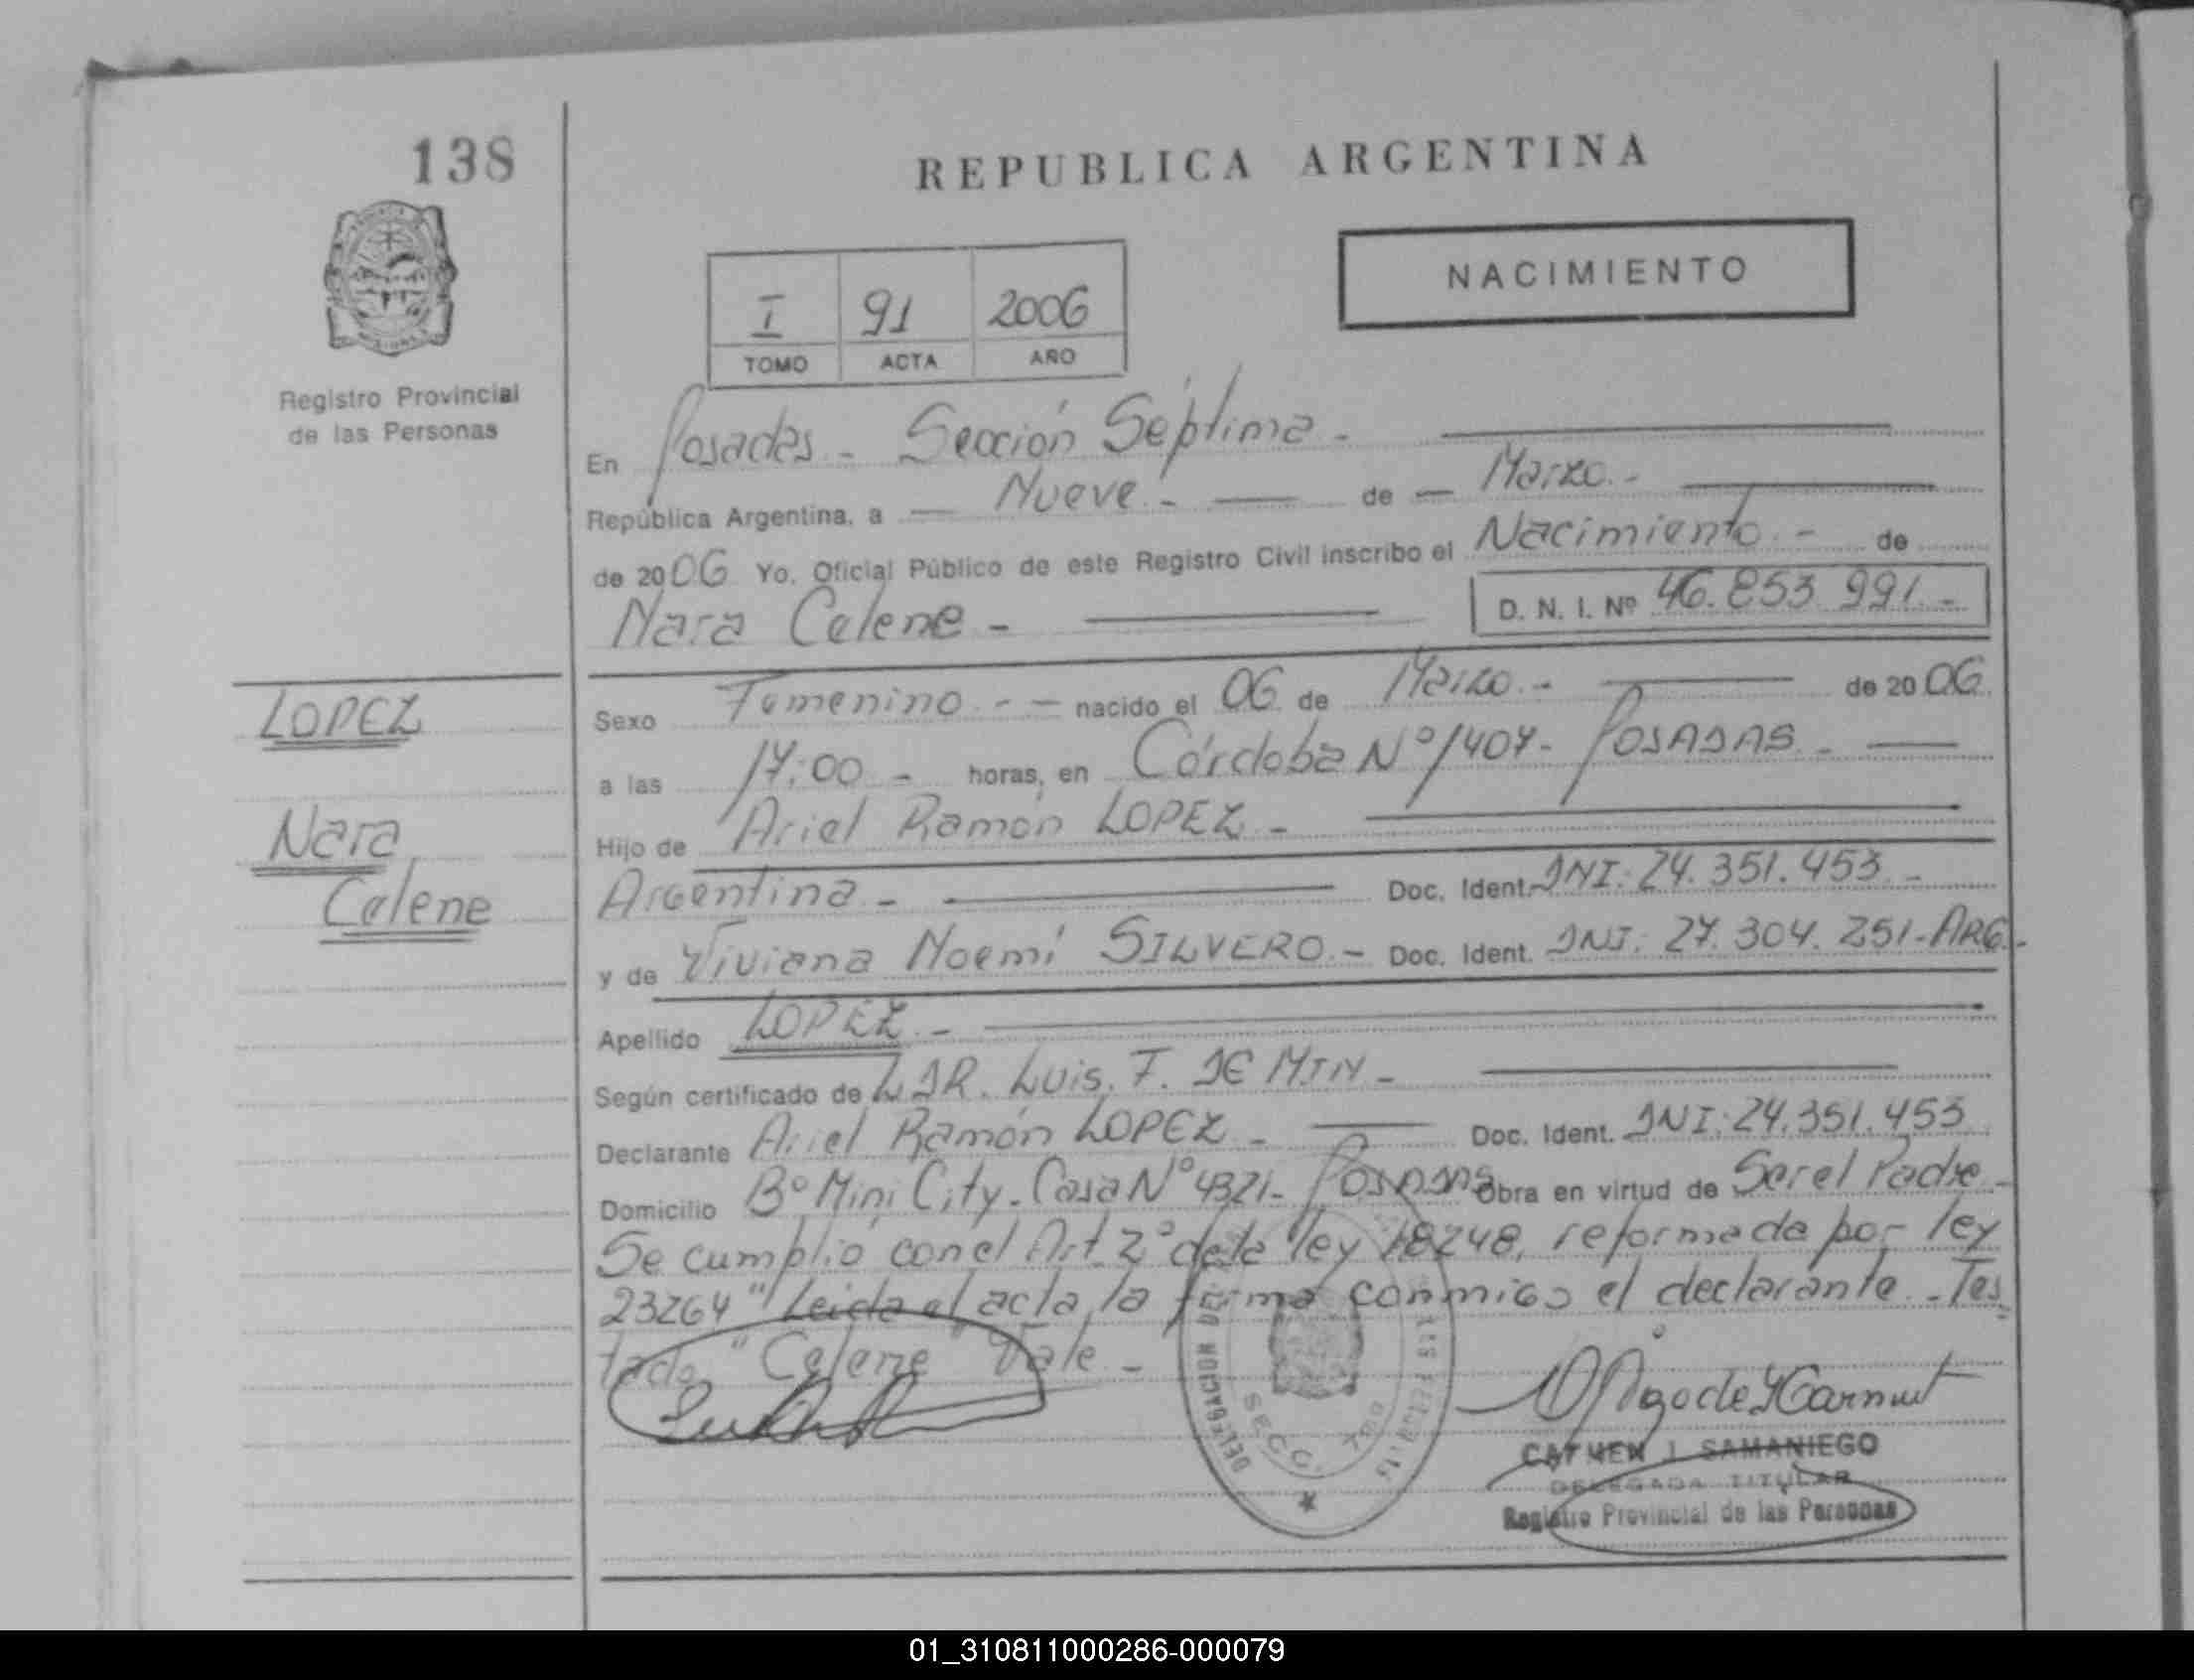 138
REPUBLICA ARGENTINA
NACIMIENTO
I 91 2006
TOMO ACTA AÑO
Registro Provincial
de las Personas
En Posadas - Sección Séptima -
República Argentina, a Nueve - de Marzo -
de 2006 Yo, Oficial Público de este Registro Civil inscribo el Nacimiento - de
Nara Celene - D. N. I. Nº 46.853.991.-
LOPEZ
Nara
Celene
Sexo Femenino - - nacido el 06 de Marzo - de 2006
a las 17:00 - horas, en Córdoba Nº 1407 - POSADAS -
Hijo de Ariel Ramón LOPEZ -
Argentina - Doc. Ident. DNI: 24.351.453 -
y de Viviana Noemí SILVERO - Doc. Ident. DNI: 27.304.251 - ARG.-
Apellido LOPEZ -
Según certificado de DR. Luis. F. DE MIN -
Declarante Ariel Ramón LOPEZ - Doc. Ident. DNI: 24.351.453
Domicilio Bº Mini City - Casa Nº 4321 - POSADAS Obra en virtud de Ser el Padre -
Se cumplió con el Art. 2º de la ley 18248, reformada por ley
23264" Leida el acta, la firma conmigo el declarante - Tes
tado "Celene" Vale -
DELEGACION DE
SECC. 7ma
CARMEN I. SAMANIEGO
DELEGADA TITULAR
Registro Provincial de las Personas
01_310811000286-000079